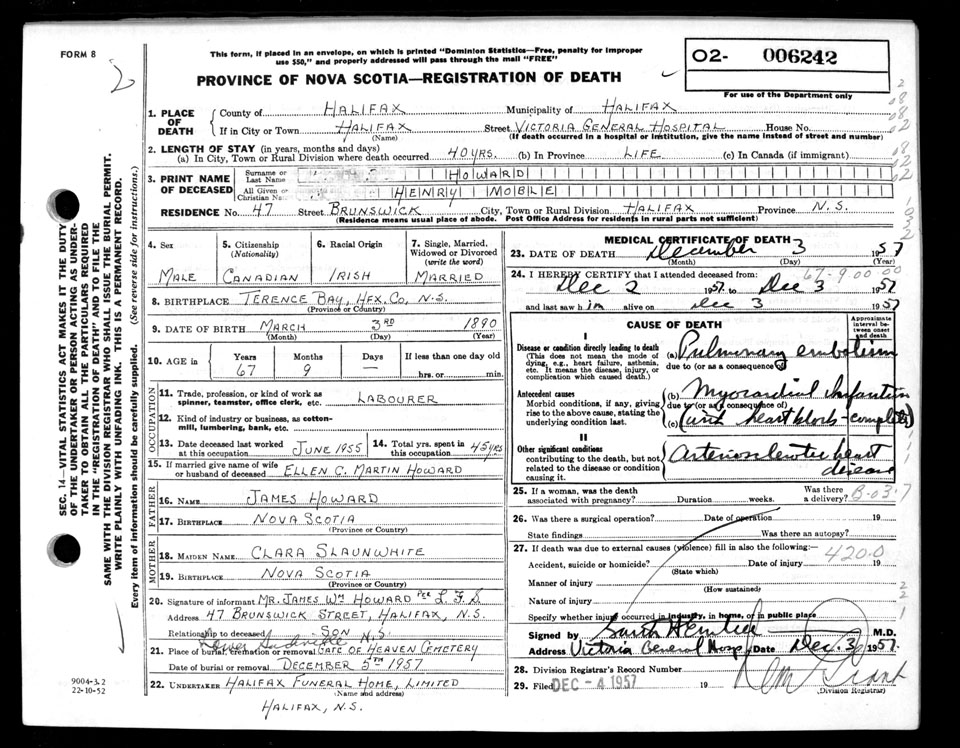 FORM 8
This form, if placed in an envelope, on which is printed "Dominion Statistics—Free, penalty for improper
use $50," and properly addressed will pass through the mail "FREE"
PROVINCE OF NOVA SCOTIA—REGISTRATION OF DEATH
02- 006242
For use of the Department only
1. PLACE OF DEATH
County of HALIFAX Municipality of HALIFAX
If in City or Town HALIFAX Street VICTORIA GENERAL HOSPITAL House No.
(Name) (If death occurred in a hospital or institution, give the name instead of street and number)
2. LENGTH OF STAY (in years, months and days)
(a) In City, Town or Rural Division where death occurred 40 YRS. (b) In Province LIFE (c) In Canada (if immigrant)
3. PRINT NAME OF DECEASED
Surname or Last Name HOWARD
All Given or Christian Names HENRY MOBLE
RESIDENCE No. 47 Street BRUNSWICK City, Town or Rural Division HALIFAX Province N.S.
(Residence means usual place of abode. Post Office Address for residents in rural parts not sufficient)
4. Sex MALE
5. Citizenship (Nationality) CANADIAN
6. Racial Origin IRISH
7. Single, Married, Widowed or Divorced (write the word) MARRIED
8. BIRTHPLACE TERENCE BAY, HFX. CO, N.S.
(Province or Country)
9. DATE OF BIRTH MARCH 3RD 1890
(Month) (Day) (Year)
10. AGE in Years Months Days If less than one day old
67 9 — hrs. or min.
OCCUPATION
11. Trade, profession, or kind of work as spinner, teamster, office clerk, etc. LABOURER
12. Kind of industry or business, as cotton-mill, lumbering, bank, etc.
13. Date deceased last worked at this occupation JUNE 1955
14. Total yrs. spent in this occupation 45 YRS
15. If married give name of wife or husband of deceased ELLEN C. MARTIN HOWARD
FATHER
16. NAME JAMES HOWARD
17. BIRTHPLACE NOVA SCOTIA
(Province or Country)
MOTHER
18. MAIDEN NAME CLARA SLAUNWHITE
19. BIRTHPLACE NOVA SCOTIA
(Province or Country)
20. Signature of informant MR. JAMES WM HOWARD PER L. F. S
Address 47 BRUNSWICK STREET, HALIFAX, N.S.
Relationship to deceased SON
Lower Sackville N.S.
21. Place of burial, cremation or removal GATE OF HEAVEN CEMETERY
Date of burial or removal DECEMBER 5TH 1957
22. UNDERTAKER HALIFAX FUNERAL HOME, LIMITED
(Name and address)
HALIFAX, N.S.
MEDICAL CERTIFICATE OF DEATH
23. DATE OF DEATH December 3 1957
(Month) (Day) (Year)
67-9 00 00
24. I HEREBY CERTIFY that I attended deceased from:
Dec 2 1957 to Dec 3 1957
and last saw him alive on Dec 3 1957
CAUSE OF DEATH
Approximate interval between onset and death
I
Disease or condition directly leading to death
(This does not mean the mode of dying, e.g., heart failure, asthenia, etc. It means the disease, injury, or complication which caused death.)
(a) Pulmonary embolism
due to (or as a consequence of)
Antecedent causes
Morbid conditions, if any, giving rise to the above cause, stating the underlying condition last.
(b) Myocardial Infarction
due to (or as a consequence of)
(c) (with heart block - complete)
II
Other significant conditions
contributing to the death, but not related to the disease or condition causing it.
Arteriosclerotic heart disease
25. If a woman, was the death associated with pregnancy? Duration weeks. Was there a delivery?
B-03-7
26. Was there a surgical operation? Date of operation 19
State findings Was there an autopsy?
27. If death was due to external causes (violence) fill in also the following:—
420.0
Accident, suicide or homicide? Date of injury 19
(State which)
Manner of injury
(How sustained)
Nature of injury
Specify whether injury occurred in industry, in home, or in public place
Signed by M.D.
Address Victoria General Hosp Date Dec. 3 1957.
28. Division Registrar's Record Number
29. Filed DEC - 4 1957 19
(Division Registrar)
SEC. 14—VITAL STATISTICS ACT MAKES IT THE DUTY
OF THE UNDERTAKER OR PERSON ACTING AS UNDER-
TAKER TO OBTAIN ALL THE PARTICULARS REQUIRED
IN THE "REGISTRATION OF DEATH" AND TO FILE THE
SAME WITH THE DIVISION REGISTRAR WHO SHALL ISSUE THE BURIAL PERMIT.
WRITE PLAINLY WITH UNFADING INK. THIS IS A PERMANENT RECORD.
Every item of information should be carefully supplied. (See reverse side for instructions.)
9004-3.2
22-10-52